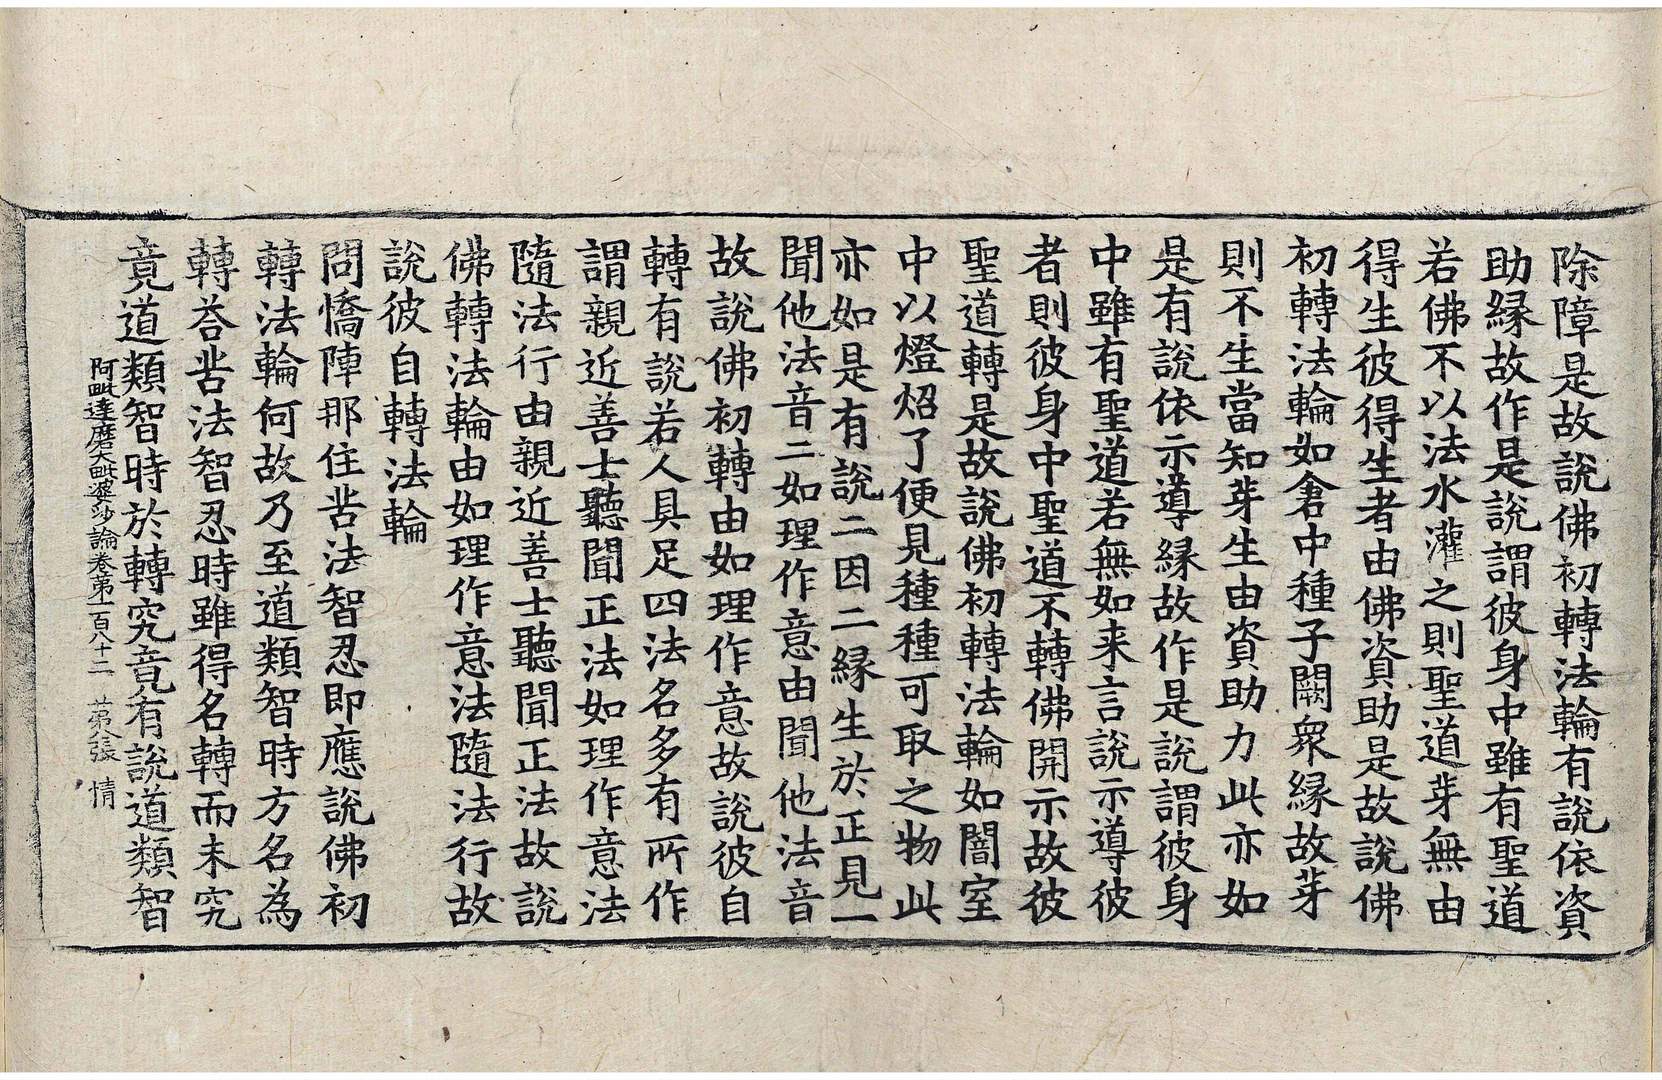 除障是故說佛初轉法輪有說依資
助縁故作是說謂彼身中雖有聖道
若佛不以法水灌之則聖道芽無由
得生彼得生者由佛資助是故說佛
初轉法輪如倉中種子闕衆縁故芽
則不生當知芽生由資助力此亦如
是有說依示導縁故作是說謂彼身
中雖有聖道若無如来言說示導彼
者則彼身中聖道不轉佛開示故彼
聖道轉是故說佛初轉法輪如闇室
中以燈炤了便見種種可取之物此
亦如是有說二因二縁生於正見一
聞他法音二如理作意由聞他法音
故說佛初轉由如理作意故說彼自
轉有說若人具足四法名多有所作
謂親近善士聽聞正法如理作意法
隨法行由親近善士聽聞正法故說
佛轉法輪由如理作意法隨法行故
說彼自轉法輪
問憍陣那住苦法智忍即應說佛初
轉法輪何故乃至道類智時方名為
轉荅苦法智忍時雖得名轉而未究
竟道類智時於轉究竟有說道類智
阿毗達磨大毗婆沙論卷第一百八十二 第八張 情